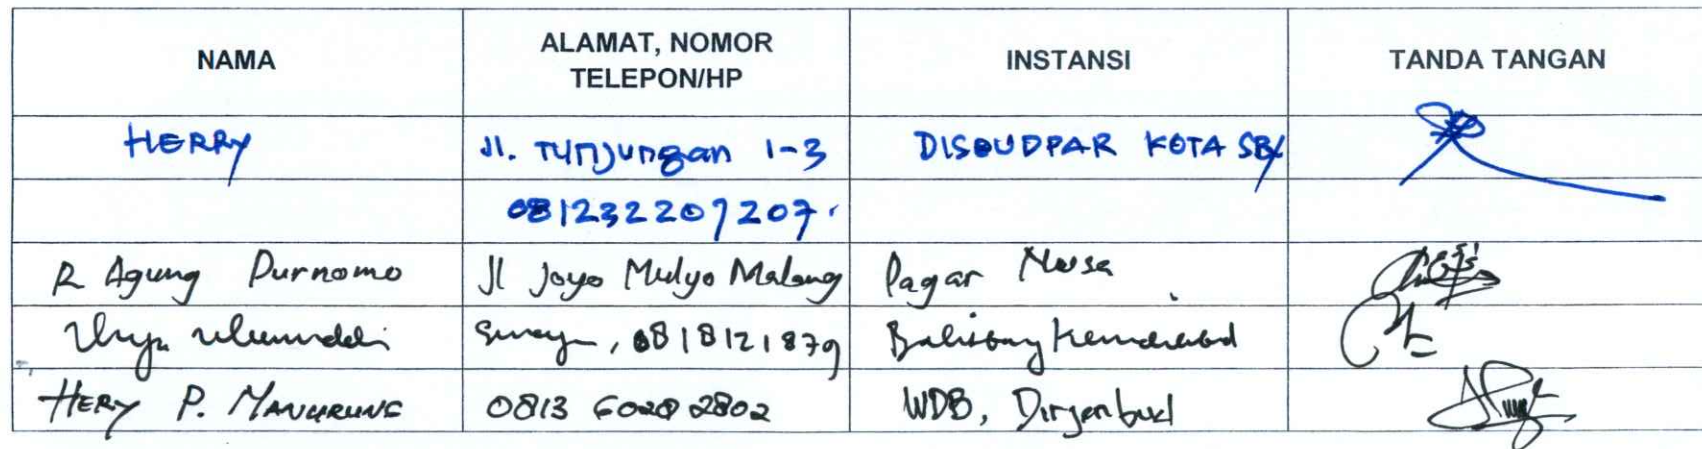 NAMA ALAMAT, NOMOR TELEPON/HP INSTANSI TANDA TANGAN
HERRY Jl. Tunjungan 1-3 DISBUDPAR KOTA SBY
081232207207.
R Agung Purnomo Jl Joyo Mulyo Malang Pagar Nusa
0818121879 Balitbang Kemdikbud
HERY P. MANURUNG 0813 60282802 WDB, Dirjenbud